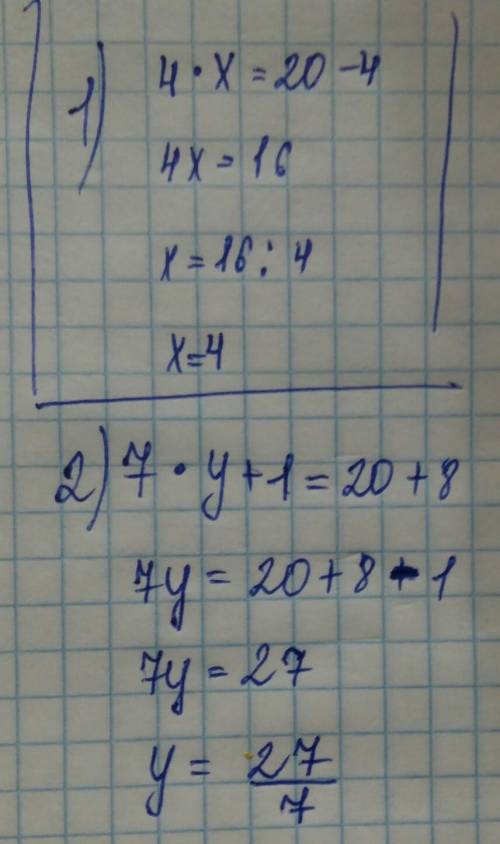 1) 4 · x = 20 - 4
4x = 16
x = 16 : 4
x = 4
2) 7 · y + 1 = 20 + 8
7y = 20 + 8 - 1
7y = 27
y = 27/7